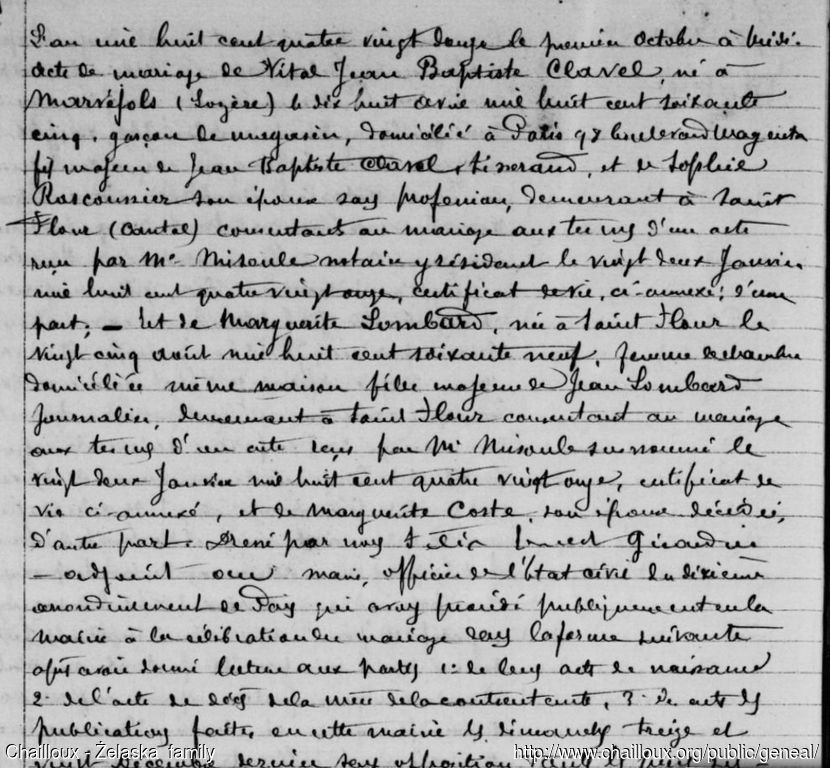 L'an mil huit cent quatre vingt douze le premier octobre à midi.
Acte de mariage de Vital Jean Baptiste Clavel, né à
Marvéjols (Lozère) le dix huit avril mil huit cent soixante
cinq, garçon de magasin, domicilié à Paris 98 boulevard Magenta
fils majeur de Jean Baptiste Clavel, tisserand, et de Sophie
son épouse sans profession, demeurant à Saint
Flour (Cantal) consentants au mariage aux termes d'un acte
reçu par Me Misoule notaire y résident le vingt deux Janvier
mil huit cent quatre vingt onze, certificat de vie, ci-annexé; d'une
part; — Et de Marguerite Lombard, née à Saint Flour le
vingt cinq août mil huit cent soixante neuf, femme de chambre
domiciliée même maison fille majeure de Jean Lombard
Journalier, demeurant à Saint Flour consentant au mariage
aux termes d'un acte reçu par Me Misoule susnommé le
vingt deux Janvier mil huit cent quatre vingt onze, certificat de
vie ci-annexé, et de Marguerite Coste, son épouse décédée,
d'autre part. Dressé par nous Girardin
— adjoint au maire, officier de l'Etat civil du dixième
arrondissement de Paris qui avons procédé publiquement en la
mairie à la célébration du mariage dans la forme suivante
après avoir donné lecture aux parties 1: de leurs actes de naissance
2: de l'acte de décès de la mère de la contractante, 3: des actes des
publications faites en cette mairie les dimanches treize et
vingt décembre dernier sans opposition
Chailloux - Żelaska family
http://www.chailloux.org/public/geneal/